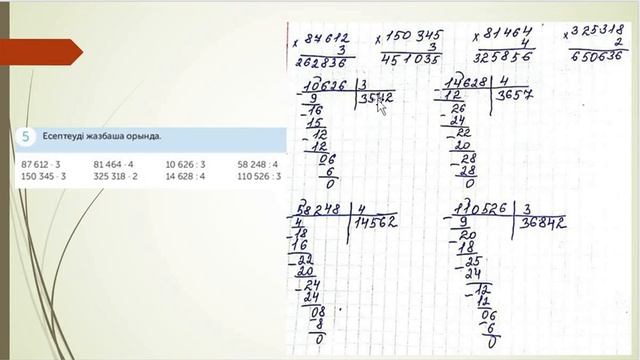 5 Есептеуді жазбаша орында.
87 612 · 3 81 464 · 4 10 626 : 3 58 248 : 4
150 345 · 3 325 318 · 2 14 628 : 4 110 526 : 3
× 87612
3
262836
× 150345
3
451035
× 81464
4
325856
× 325318
2
650636
- 10626 | 3
9 | 3542
- 16
15
- 12
- 12
06
- 6
0
- 14628 | 4
12 | 3657
- 26
24
- 22
20
- 28
28
0
- 58248 | 4
4 | 14562
- 18
16
- 22
20
- 24
24
08
- 8
0
- 110526 | 3
9 | 36842
- 20
18
- 25
24
- 12
12
06
- 6
0